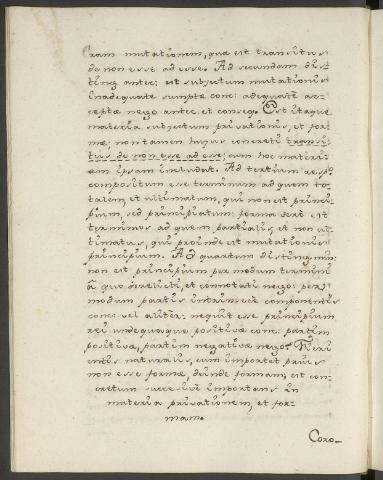 ram mutationem, quæ est transitus
de non esse ad esse. Ad secundam dis-
ting antec: est subjectum mutationis
inadequate sumptæ conc: adequate ac-
ceptæ nego antec. et conseq. Est itaque
materia subjectum privationis, et for-
mæ; non tamen hujus concreti transi-
tus de non esse ad esse; cum hoc materi-
am ipsam includat. Ad tertium resp:
compositum esse terminum ad quem to-
talem et ultimatum, qui non est princi-
pium, sed principiatum: forma vero est
terminus ad quem partialis, et non ul-
timatus, qui proinde est mutationis
principium. Ad quartum disting. min:
non est principium per modum termini
à quo derelicti, et connotati nego: per
modum partis intrinsecè componentis
conc: vel aliter: nequit esse principium
rei undequaque positivæ conc: partim
positivæ, partim negativæ nego. Fieri
entis naturalis, cum importet prius
non esse formæ, deinde formam; est con-
cretum successivè importans in
materia privationem, et for-
mam.
Coro-